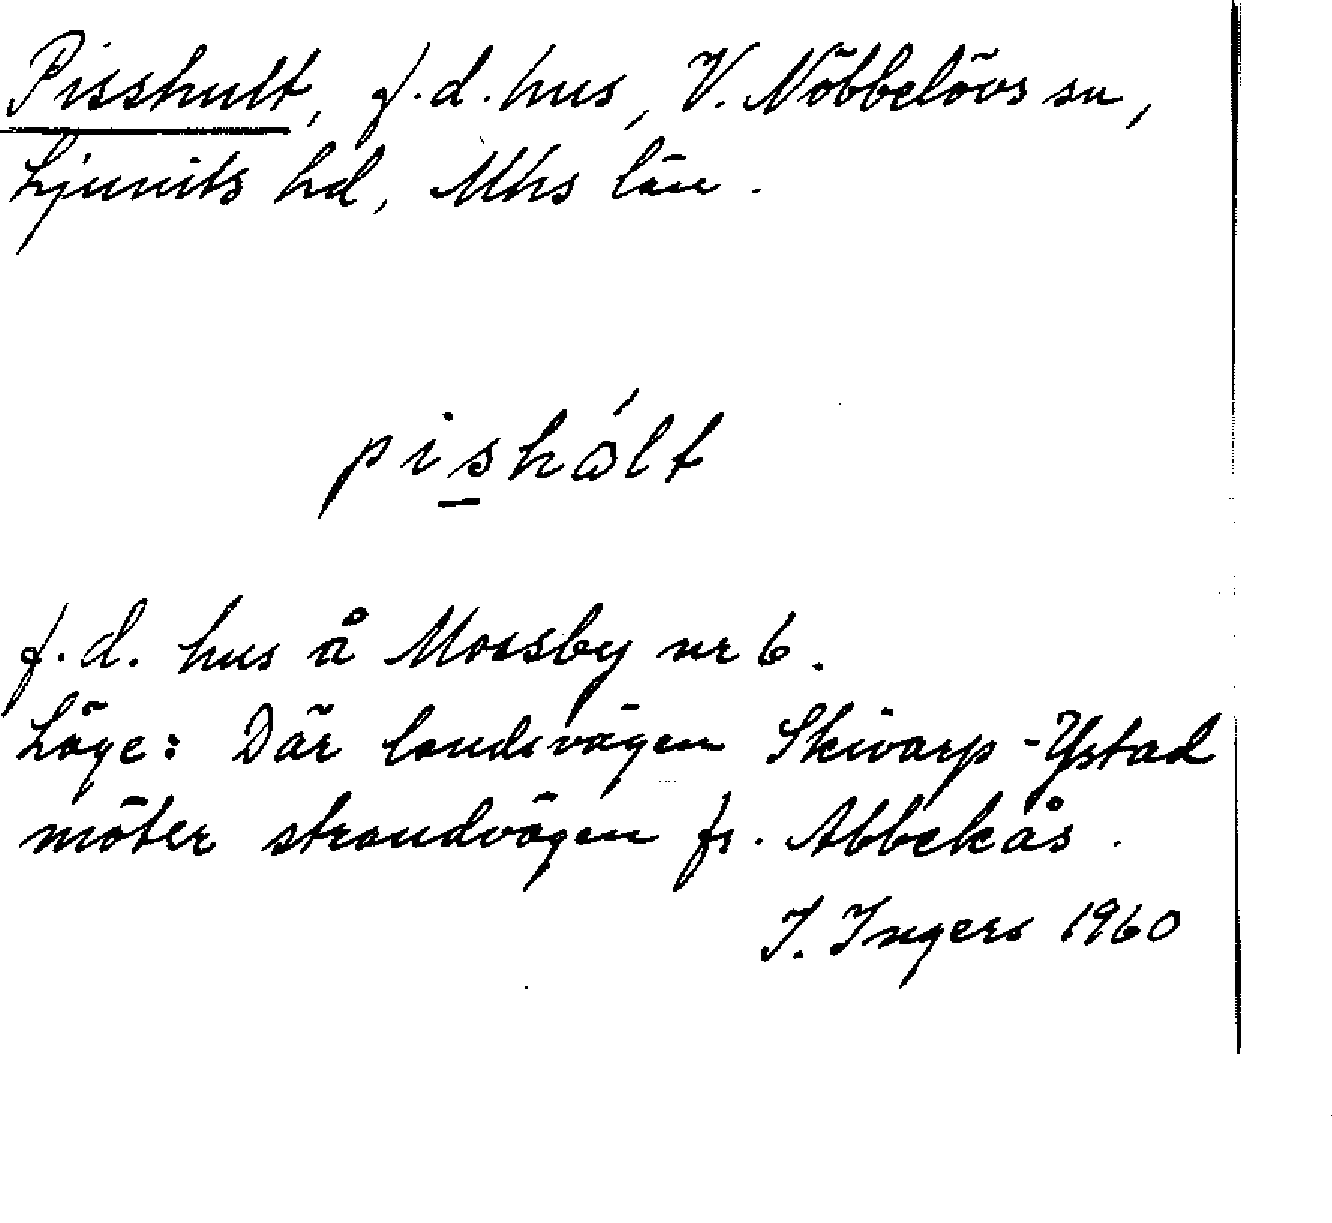 Pisshult, f.d. hus, V. Nöbbelövs sn,
Ljunits hd, Mhs län.
pishúlt
f.d. hus å Mossby nr 6.
Läge: Där landsvägen Skivarp-Ystad
möter strandvägen fr. Abbekås.
I. Ingers 1960